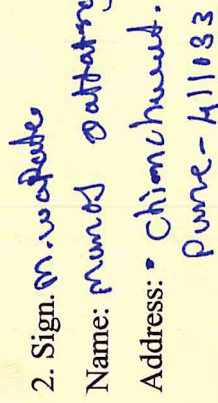 2. Sign. M. wakute
Name: Manoj Dattatray
Address: Chinchwad.
Pune-411033